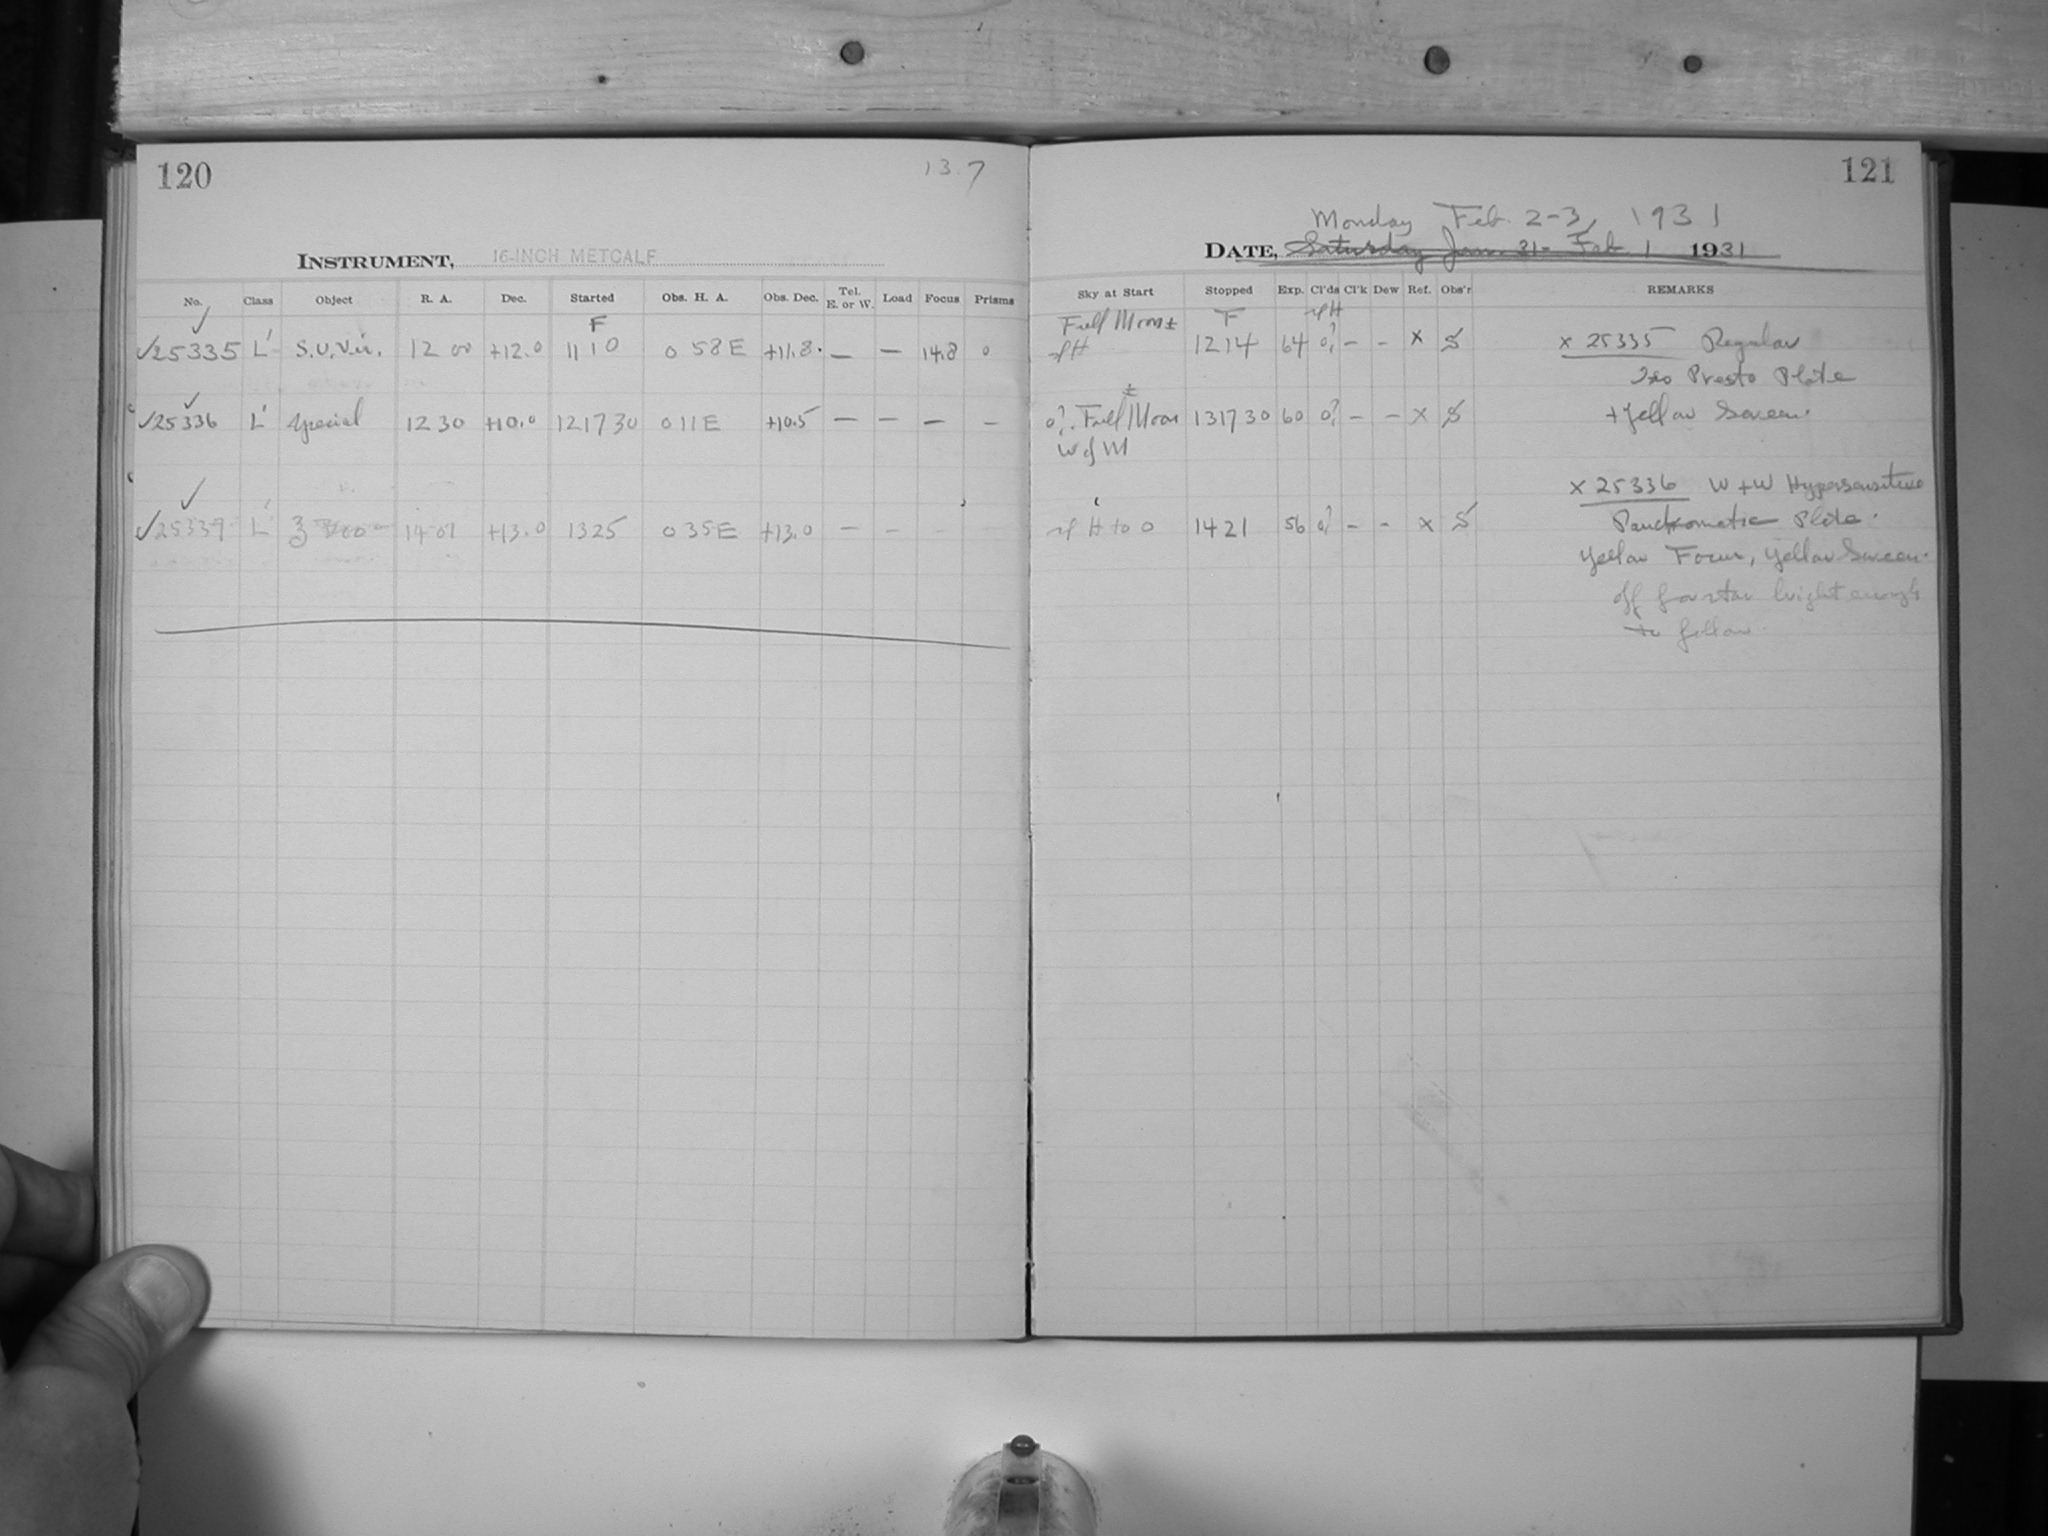 120
13.7
INSTRUMENT, 16-INCH METCALF
No. Class Object R. A. Dec. Started Obs. H. A. Obs. Dec. Tel. E. or W. Load Focus Prisms
F
✓25335 L' S.U.Vir. 12 00 +12.0 11 10 0 58 E +11.8 — — 14.8 0
✓25336 L' Special 12 30 +10.0 12 17 30 0 11 E +10.5 — — — —
L' 14 07 +13.0 13 25 0 35 E +13.0 — — —
121
Monday Feb. 2-3, 1931
DATE, Saturday Jan. 31- Feb 1 1931
Sky at Start Stopped Exp. Cl'ds Cl'k Dew Ref. Obs'r REMARKS
Full Moon ± F
H 12 14 64 0? — — x S x 25335 Regular
Iso Presto Plate
0?. Full Moon ± 13 17 30 60 0? — — x S + Yellow Screen.
W of M
x 25336 W + W Hypersensitive
H to 0 14 21 56 0? — — x S Panchromatic Plate.
Yellow Focus, Yellow Screen.
off for star bright enough
to follow.